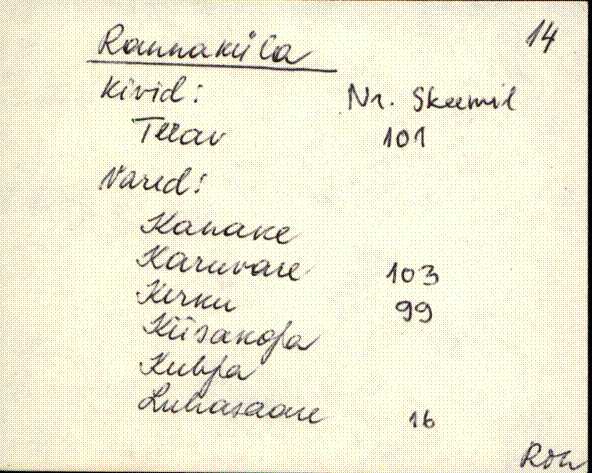 14
Rannaküla
Kivid: Nr. Skeemil
Terav 101
Vared:
Kanake
Karuvare 103
Kerku 99
Kiisakoja
Kubja
Luhasaare 16
Roh